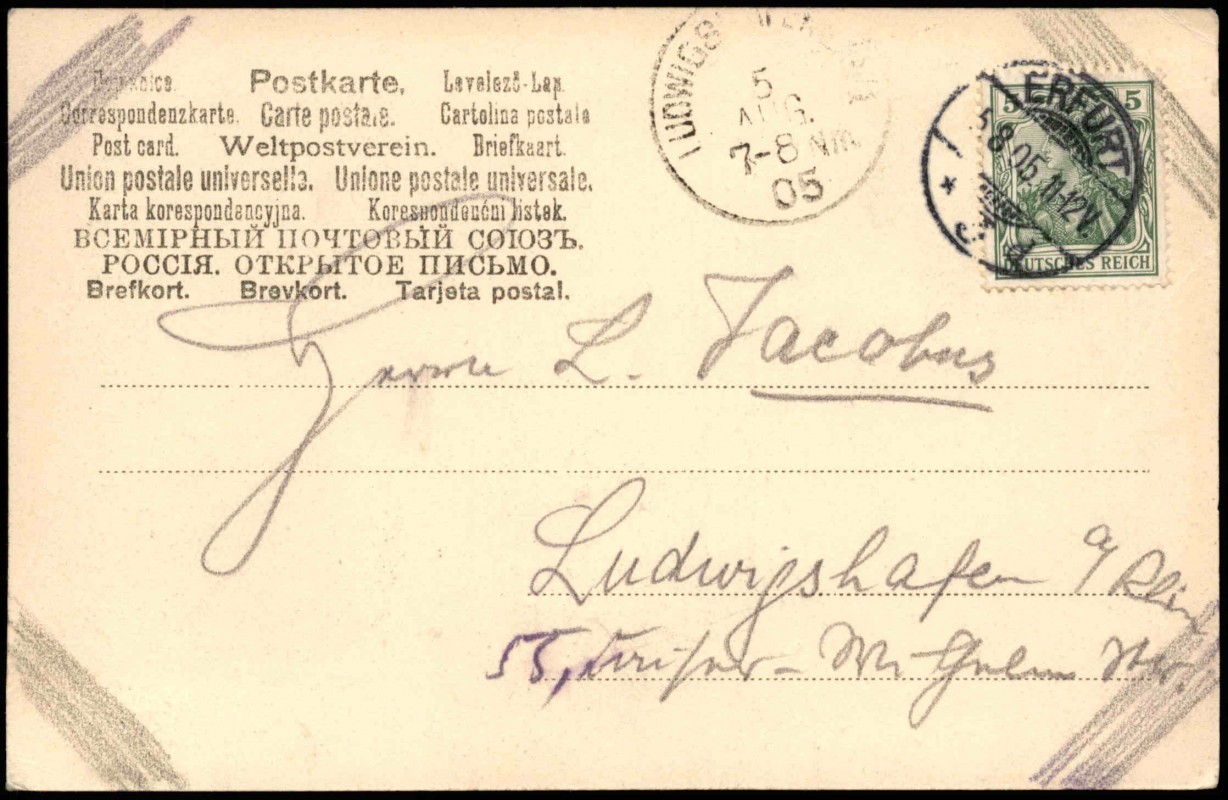 Postkarte. Levelező-Lap.
Correspondenzkarte. Carte postale. Cartolina postale
Post card. Weltpostverein. Briefkaart.
Union postale universelle. Unione postale universale.
Karta korespondencyjna. Korespondenční listek.
ВСЕМІРНЫЙ ПОЧТОВЫЙ СОЮЗЪ.
РОССІЯ. ОТКРЫТОЕ ПИСЬМО.
Brefkort. Brevkort. Tarjeta postal.
5
AUG.
7-8 Nm
05
ERFURT
5.8.05.11-12V.
* 3
5 5
DEUTSCHES REICH
Herrn L. Jacobus
Ludwigshafen a/ Rhein
55, Kaiser-Wilhelm Str.